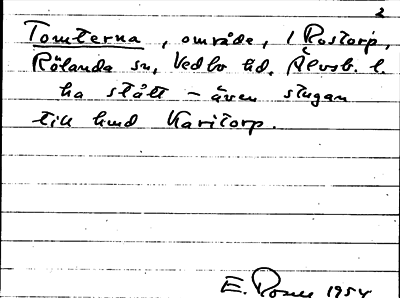 2
Tomterna, område, i Rostorp,
Rölanda sn, Vedbo hd, Älvsb. l.
ha stått – även stugan
till hmd Karitorp.
E. 1954